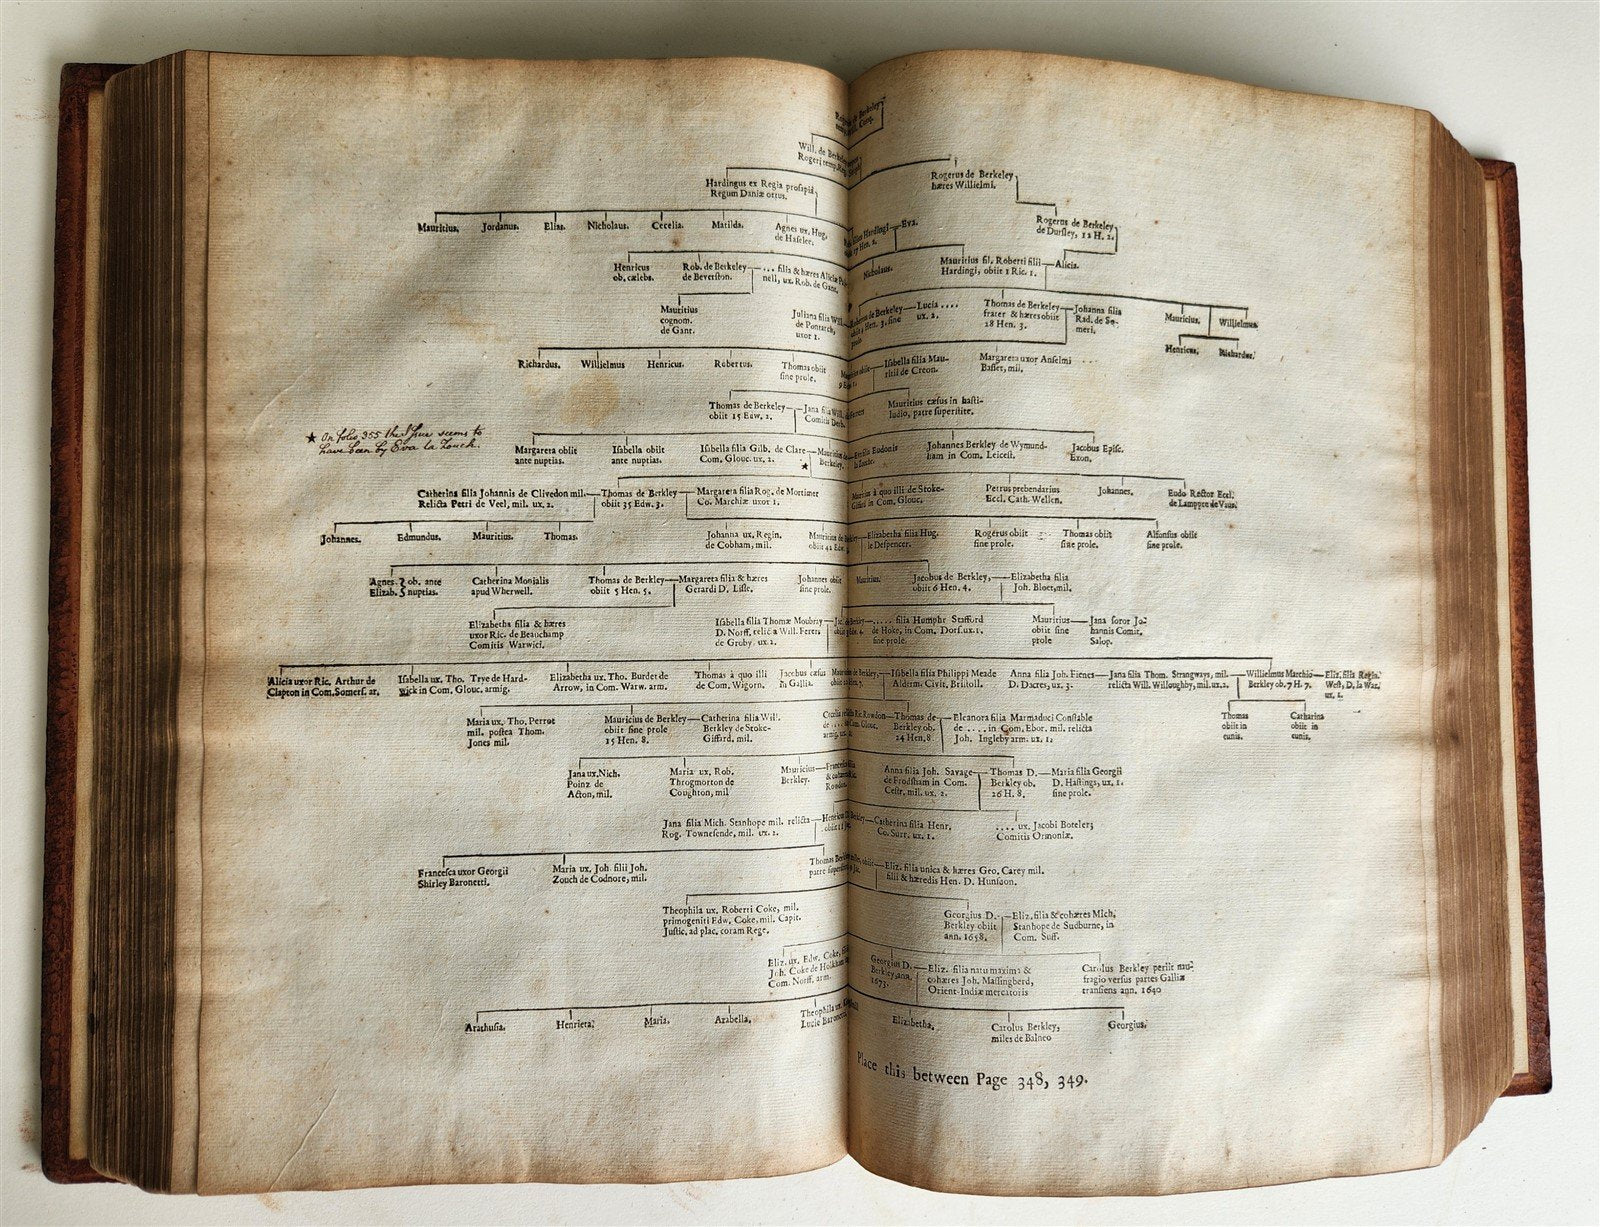 de Berkeley
Will. de
Rogeri temp.
Hardingus ex Regia prosapia
Regum Daniæ ortus.
Rogerus de Berkeley
hæres Willielmi.
Rogerus de Berkeley
de Dursley, 12 H. 2.
Mauritius. Jordanus. Elias. Nicholaus. Cecelia. Matilda.
Agnes ux. Hug.
de Haseler.
filius Hardingi Eva.
Henricus
ob. cælebs.
Rob. de Berkeley
de Beverston.
.... filia & hæres Aliciæ
nell, ux. Rob. de Gant.
Nicholaus.
Mauritius fil. Roberti filii Alicia.
Hardingi, obiit 1 Ric. 1.
Mauritius
cognom.
de Gant.
Juliana filia Will.
de Pontarch,
uxor 1.
de Berkeley Lucia ....
Hen. 3. sine ux. 2.
prole.
Thomas de Berkeley
frater & hæres obiit
28 Hen. 3.
Johanna filia
Rad. de So-
meri.
Mauricius. Willielmus.
Henricus. Richardus.
Richardus. Willielmus Henricus. Robertus.
Thomas obiit
sine prole.
Isabella filia Mau-
ritii de Creon.
Margareta uxor Anselmi
Basset, mil.
Thomas de Berkeley
obiit 15 Edw. 2.
Jana filia Will.
Comitis Derb.
Mauritius cæsus in hasti-
ludio, patre superstite.
★ On folio 355 the Issue seems to
have been by Eva la Zouch.
Margareta obiit
ante nuptias.
Isabella obiit
ante nuptias.
Isabella filia Gilb. de Clare
Com. Glouc. ux. 2.
★
Berkeley.
Eva filia Eudonis
Johannes Berkley de Wymund-
ham in Com. Leicest.
Jacobus Episc.
Exon.
Catherina filia Johannis de Clivedon mil.
Relicta Petri de Veel, mil. ux. 2.
Thomas de Berkley
obiit 35 Edw. 3.
Margareta filia Rog. de Mortimer
Co. Marchiæ uxor 1.
à quo illi de Stoke-
Giffard in Com. Glouc.
Petrus prebendarius
Eccl. Cath. Wellen.
Johannes.
Eudo Rector Eccl.
Johannes. Edmundus. Mauritius. Thomas.
Johanna ux. Regin.
de Cobham, mil.
Elizabetha filia Hug.
le Despencer.
Rogerus obiit
sine prole.
Thomas obiit
sine prole.
Alfonsus obiit
sine prole.
Agnes. } ob. ante
Elizab. } nuptias.
Catherina Monialis
apud Wherwell.
Thomas de Berkley
obiit 5 Hen. 5.
Margareta filia & hæres
Gerardi D. Lisle.
Johannes obiit
sine prole.
Mauritius.
Jacobus de Berkley,
obiit 6 Hen. 4.
Elizabetha filia
Joh. Bloet, mil.
Elizabetha filia & hæres
uxor Ric. de Beauchamp
Comitis Warwici.
Isabella filia Thomæ Moubray
D. Norff. relicta Will. Ferers
de Groby. ux. 2.
..... filia Humphr Stafford
de Hoke, in Com. Dors. ux. 1.
sine prole.
Mauritius
obiit sine
prole
Jana soror Jo-
hannis Comit.
Salop.
Alicia uxor Ric. Arthur de
Clapton in Com. Somers. ar.
Isabella ux. Tho. Trye de Hard-
wick in Com. Glouc. armig.
Elizabetha ux. Tho. Burdet de
Arrow, in Com. Warw. arm.
Thomas à quo illi
de Com. Wigorn.
Jacobus cæsus
in Gallia.
Isabella filia Philippi Meade
Alderm. Civit. Bristoll.
Anna filia Joh. Fienes
D. Dacres, ux. 3.
Jana filia Thom. Strangways, mil.
relicta Will. Willoughby, mil. ux. 2.
Willielmus Marchio
Berkley ob. 7 H. 7.
Eliz. filia Regin.
West, D. la War,
ux. 1.
Thomas
obiit in
cunis.
Catharina
obiit in
cunis.
Maria ux. Tho. Perrot
mil. postea Thom.
Jones mil.
Mauricius de Berkley
obiit sine prole
15 Hen. 8.
Catherina filia Will.
Berkley de Stoke-
Giffard, mil.
Thomas de
Berkley ob.
24 Hen. 8
Eleanora filia Marmaduci Constable
de .... in Com. Ebor. mil. relicta
Joh. Ingleby arm. ux. 1.
Jana ux. Nich.
Poinz de
Acton, mil.
Maria ux. Rob.
Throgmorton de
Coughton, mil
Mauricius
Berkley.
Anna filia Joh. Savage
de Frodsham in Com.
Cestr. mil. ux. 2.
Thomas D.
Berkley ob.
26 H. 8.
Maria filia Georgii
D. Hastings, ux. 1.
sine prole.
Jana filia Mich. Stanhope mil. relicta
Rog. Townesende, mil. ux. 2.
Catherina filia Henr.
Co. Surr. ux. 1.
.... ux. Jacobi Boteler;
Comitis Ormoniæ.
Francesca uxor Georgii
Shirley Baronetti.
Maria ux. Joh. filii Joh.
Zouch de Codnore, mil.
Thomas
patre
Eliz. filia unica & hæres Geo. Carey mil.
filii & hæredis Hen. D. Hunsdon.
Theophila ux. Roberti Coke, mil.
primogeniti Edw. Coke, mil. Capit.
Justic. ad plac. coram Rege.
Georgius D.
Berkley obiit
ann. 1658.
Eliz. filia & cohæres Mich.
Stanhope de Sudburne, in
Com. Suff.
Eliz. ux. Edw. Coke,
Joh. Coke de Holkham
Com. Norff. arm.
Georgius D.
Berkley, ann.
1673.
Eliz. filia natu maxima &
cohæres Joh. Massingberd,
Orient-Indiæ mercatoris
Carolus Berkley periit nau-
fragio versus partes Galliæ
transiens ann. 1640
Arathusia. Henrieta. Maria. Arabella.
Theophila ux.
Lucie Baronetti
Elizabetha.
Carolus Berkley,
miles de Balneo
Georgius.
Place this between Page 348, 349.